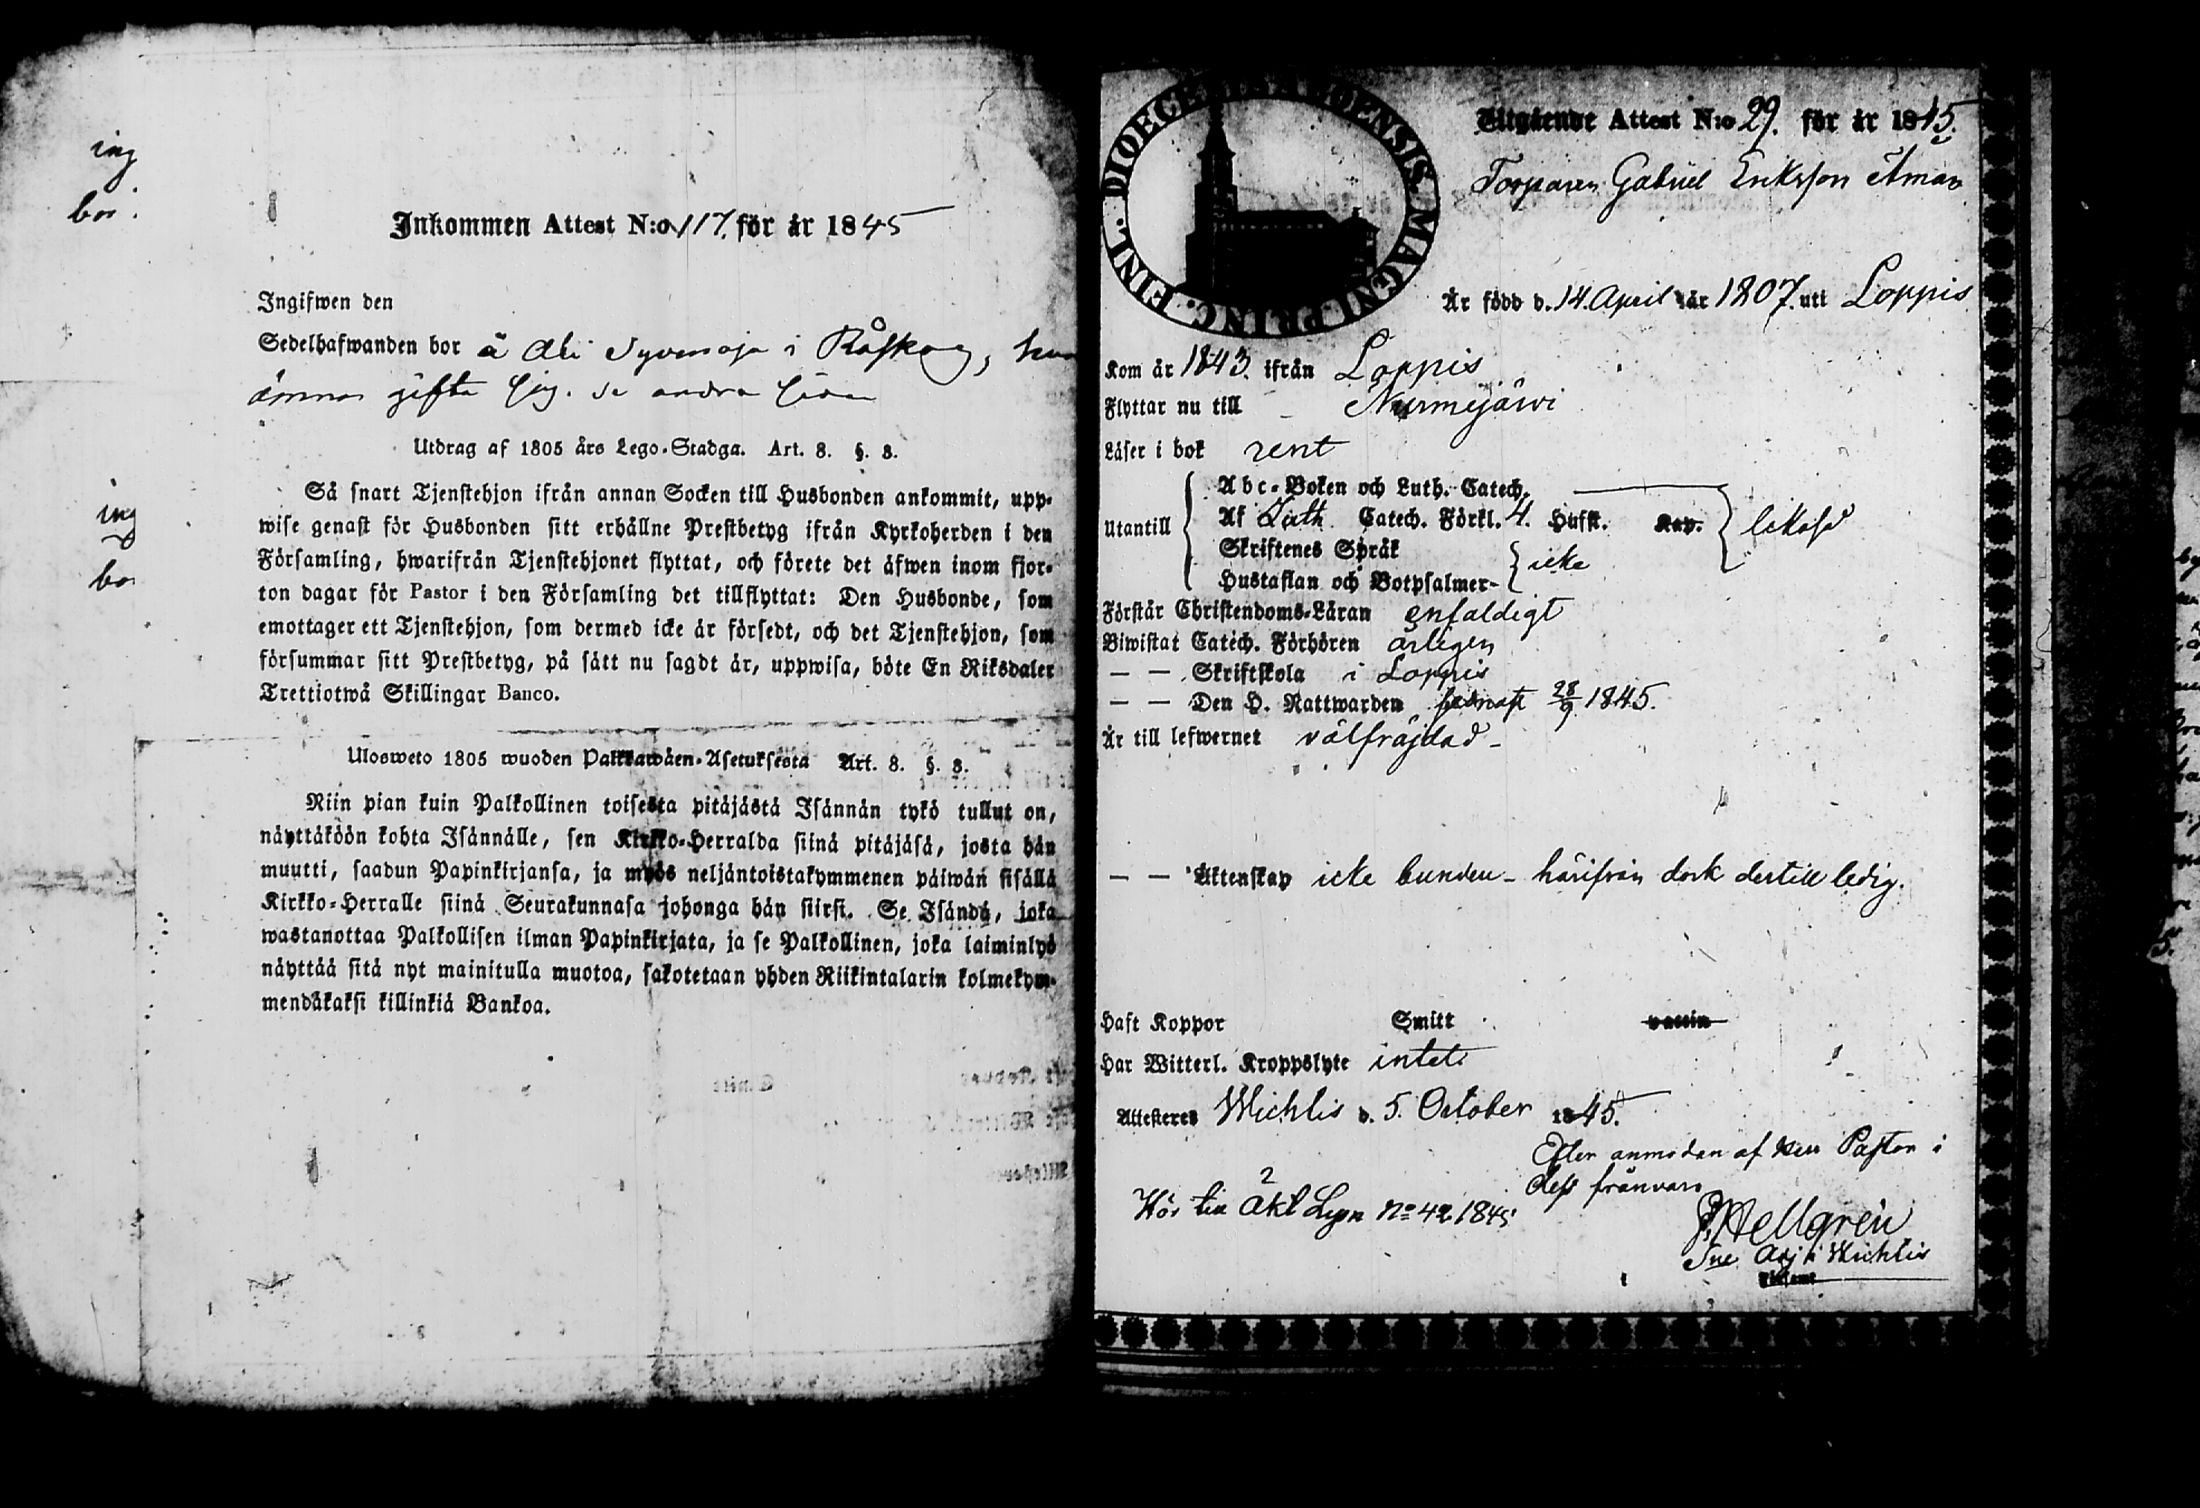 ing
bor.
ing
bor
Inkommen Attest N:o 117. för år 1845
Ingifwen den
Sedelhafwanden bor å Ali Syvenoja i Råskog,
ämnar gifta sig. de andra
Utdrag af 1805 års Lego-Stadga. Art. 8. §. 8.
Så snart Tjenstehjon ifrån annan Socken till Husbonden ankommit, upp-
wise genast för Husbonden sitt erhållne Prestbetyg ifrån Kyrkoherden i den
Församling, hwarifrån Tjenstehjonet flyttat, och förete det äfwen inom fjor-
ton dagar för Pastor i den Församling det tillflyttat: Den Husbonde, som
emottager ett Tjenstehjon, som dermed icke är försedt, och det Tjenstehjon, som
försummar sitt Prestbetyg, på sätt nu sagdt är, uppwisa, böte En Riksdaler
Trettiotwå Skillingar Banco.
Ulosweto 1805 wuoden Palkkawäen-Asetuksesta Art. 8. §. 8.
Niin pian kuin Palkollinen toisesta pitäjästä Isännän tykö tullut on,
näyttäköön kohta Isännälle, sen Kirkko-Herralda siinä pitäjäsä, josta hän
muutti, saadun Papinkirjansa, ja myös neljäntoistakymmenen päiwän sisällä
Kirkko-Herralle siinä Seurakunnasa johonga hän siirsi. Se Isändä, joka
wastanottaa Palkollisen ilman Papinkirjata, ja se Palkollinen, joka laiminlyö
näyttää sitä nyt mainitulla muotoa, sakotetaan yhden Riikintalarin kolmekym-
mendäkaksi killinkiä Bankoa.
DIOECESIS ABOENSIS. MAGNI PRINC. FINL.
Utgående Attest N:o 29. för år 1845.
Torparen Gabriel Eriksson Åman
Är född d. 14. April år 1807. uti Loppis
Kom år 1843. ifrån Loppis
Flyttar nu till Nurmijärwi
Läser i bok rent
Utantill
Abc-Boken och Luth. Catech.
Af Luth Catech. Förkl. 4. Hufst. Kap. likaså
Skriftenes Språk
Hustaflan och Botpsalmer- icke
Förstår Christendoms-Läran enfaldigt
Biwistat Catech. Förhören årligen
— — Skriftskola i Loppis
— — Den H. Nattwarden sednast 28/9 1845.
Är till lefwernet välfräjdad -
— — Äktenskap icke bunden - härifrån dock dertill ledig.
Haft Koppor Smitt vaccin
Har Witterl. Kroppslyte intet.
Attesteres Wichtis d. 5. October 1845.
Efter anmodan af Herr Pastor i
dess frånvaro
Hör till 2 Äkt Lysn No 42 1845
Hellgrén
Adj i Wichtis